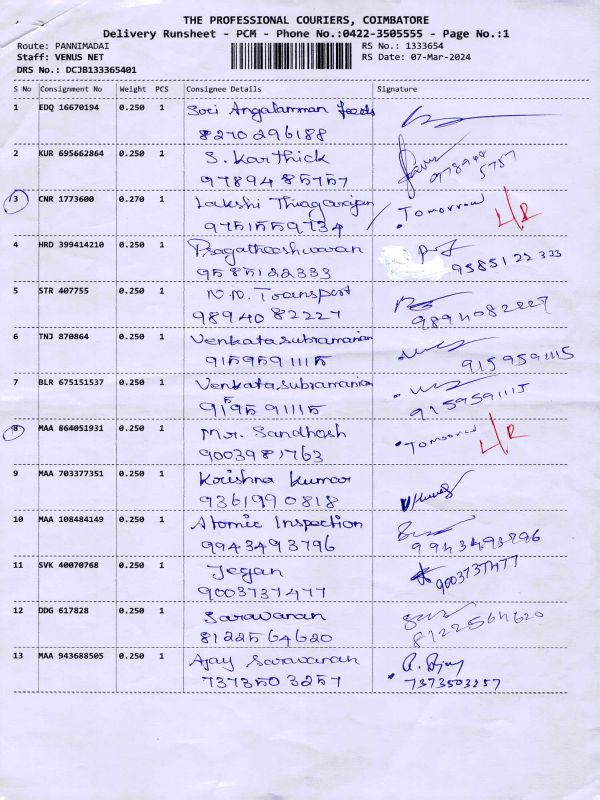 THE PROFESSIONAL COURIERS, COIMBATORE
Delivery Runsheet - PCM - Phone No.:0422-3505555 - Page No.:1
Route: PANNIMADAI RS No.: 1333654
Staff: VENUS NET RS Date: 07-Mar-2024
DRS No.: DCJB133365401
S No Consignment No Weight PCS Consignee Details Signature
1 EDQ 16670194 0.250 1 Sori Angalamman Feeds
8270296188
2 KUR 695662864 0.250 1 S. Karthick
9789485757 9789485757
3 CNR 1773600 0.270 1 Lakshi Thiagarajan Tomorrow L/R
9751559734
4 HRD 399414210 0.250 1 Pragatheeshwaran
9585122333 9585122333
5 STR 407755 0.250 1 N.N. Transport
9894082227 9894082227
6 TNJ 870864 0.250 1 Venkatasubramanian
9159591115 9159591115
7 BLR 675151537 0.250 1 Venkatasubramanian
9159591115 9159591115
8 MAA 864051931 0.250 1 Mr. Sandhosh Tomorrow L/R
9003981763
9 MAA 703377351 0.250 1 Krishna Kumar
9361990818
10 MAA 108484149 0.250 1 Atomic Inspection
9943493796 9943493796
11 SVK 40070768 0.250 1 Jegan
9003737477 9003737477
12 DDG 617828 0.250 1 Saravanan
8122564620 8122564620
13 MAA 943688505 0.250 1 Ajay Saravanan A. Ajay
7373503257 7373503257